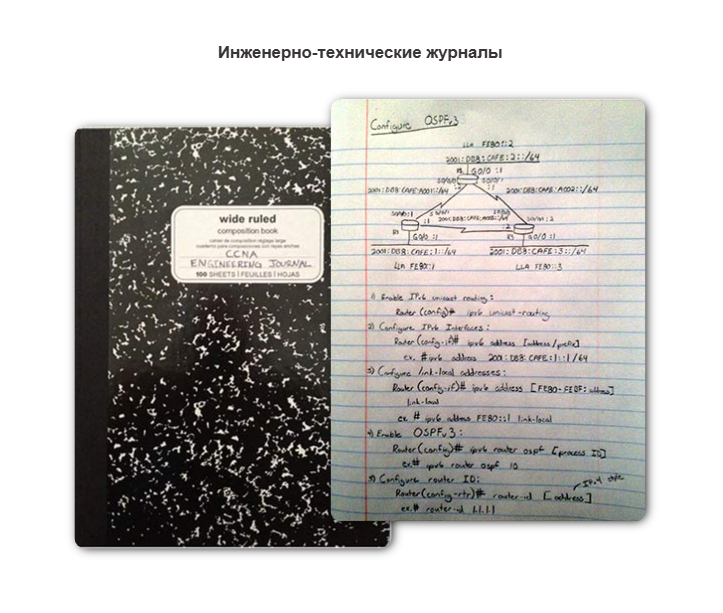 Инженерно-технические журналы
wide ruled
composition book
cahier de composition réglage large
cuaderno para composiciones con rayas anchas
CCNA
ENGINEERING JOURNAL
100 SHEETS | FEUILLES | HOJAS
Configure OSPFv3
LLA FE80::2
2001:DB8:CAFE:2::/64
R2 G0/0 :1
S0/0/0 S0/0/1
:2 :1
2001:DB8:CAFE:A001::/64 2001:DB8:CAFE:A002::/64
S0/0/0 :1
S0/0/1 :2
:1 2001:DB8:CAFE:A003::/64 :2
R1 R3
G0/0 :1 G0/0 :1
2001:DB8:CAFE:1::/64 2001:DB8:CAFE:3::/64
LLA FE80::1 LLA FE80::3
1) Enable IPv6 unicast routing:
Router(config)# ipv6 unicast-routing
2) Configure IPv6 Interfaces:
Router(config-if)# ipv6 address [address/prefix]
ex. #ipv6 address 2001:DB8:CAFE:1::1/64
3) Configure link-local addresses:
Router(config-if)# ipv6 address [FE80-FEBF: address]
link-local
ex. # ipv6 address FE80::1 link-local
4) Enable OSPFv3:
Router(config)# ipv6 router ospf [process ID]
ex.# ipv6 router ospf 10
5) Configure router ID:
IPv4 style
Router(config-rtr)# router-id [address]
ex.# router-id 1.1.1.1